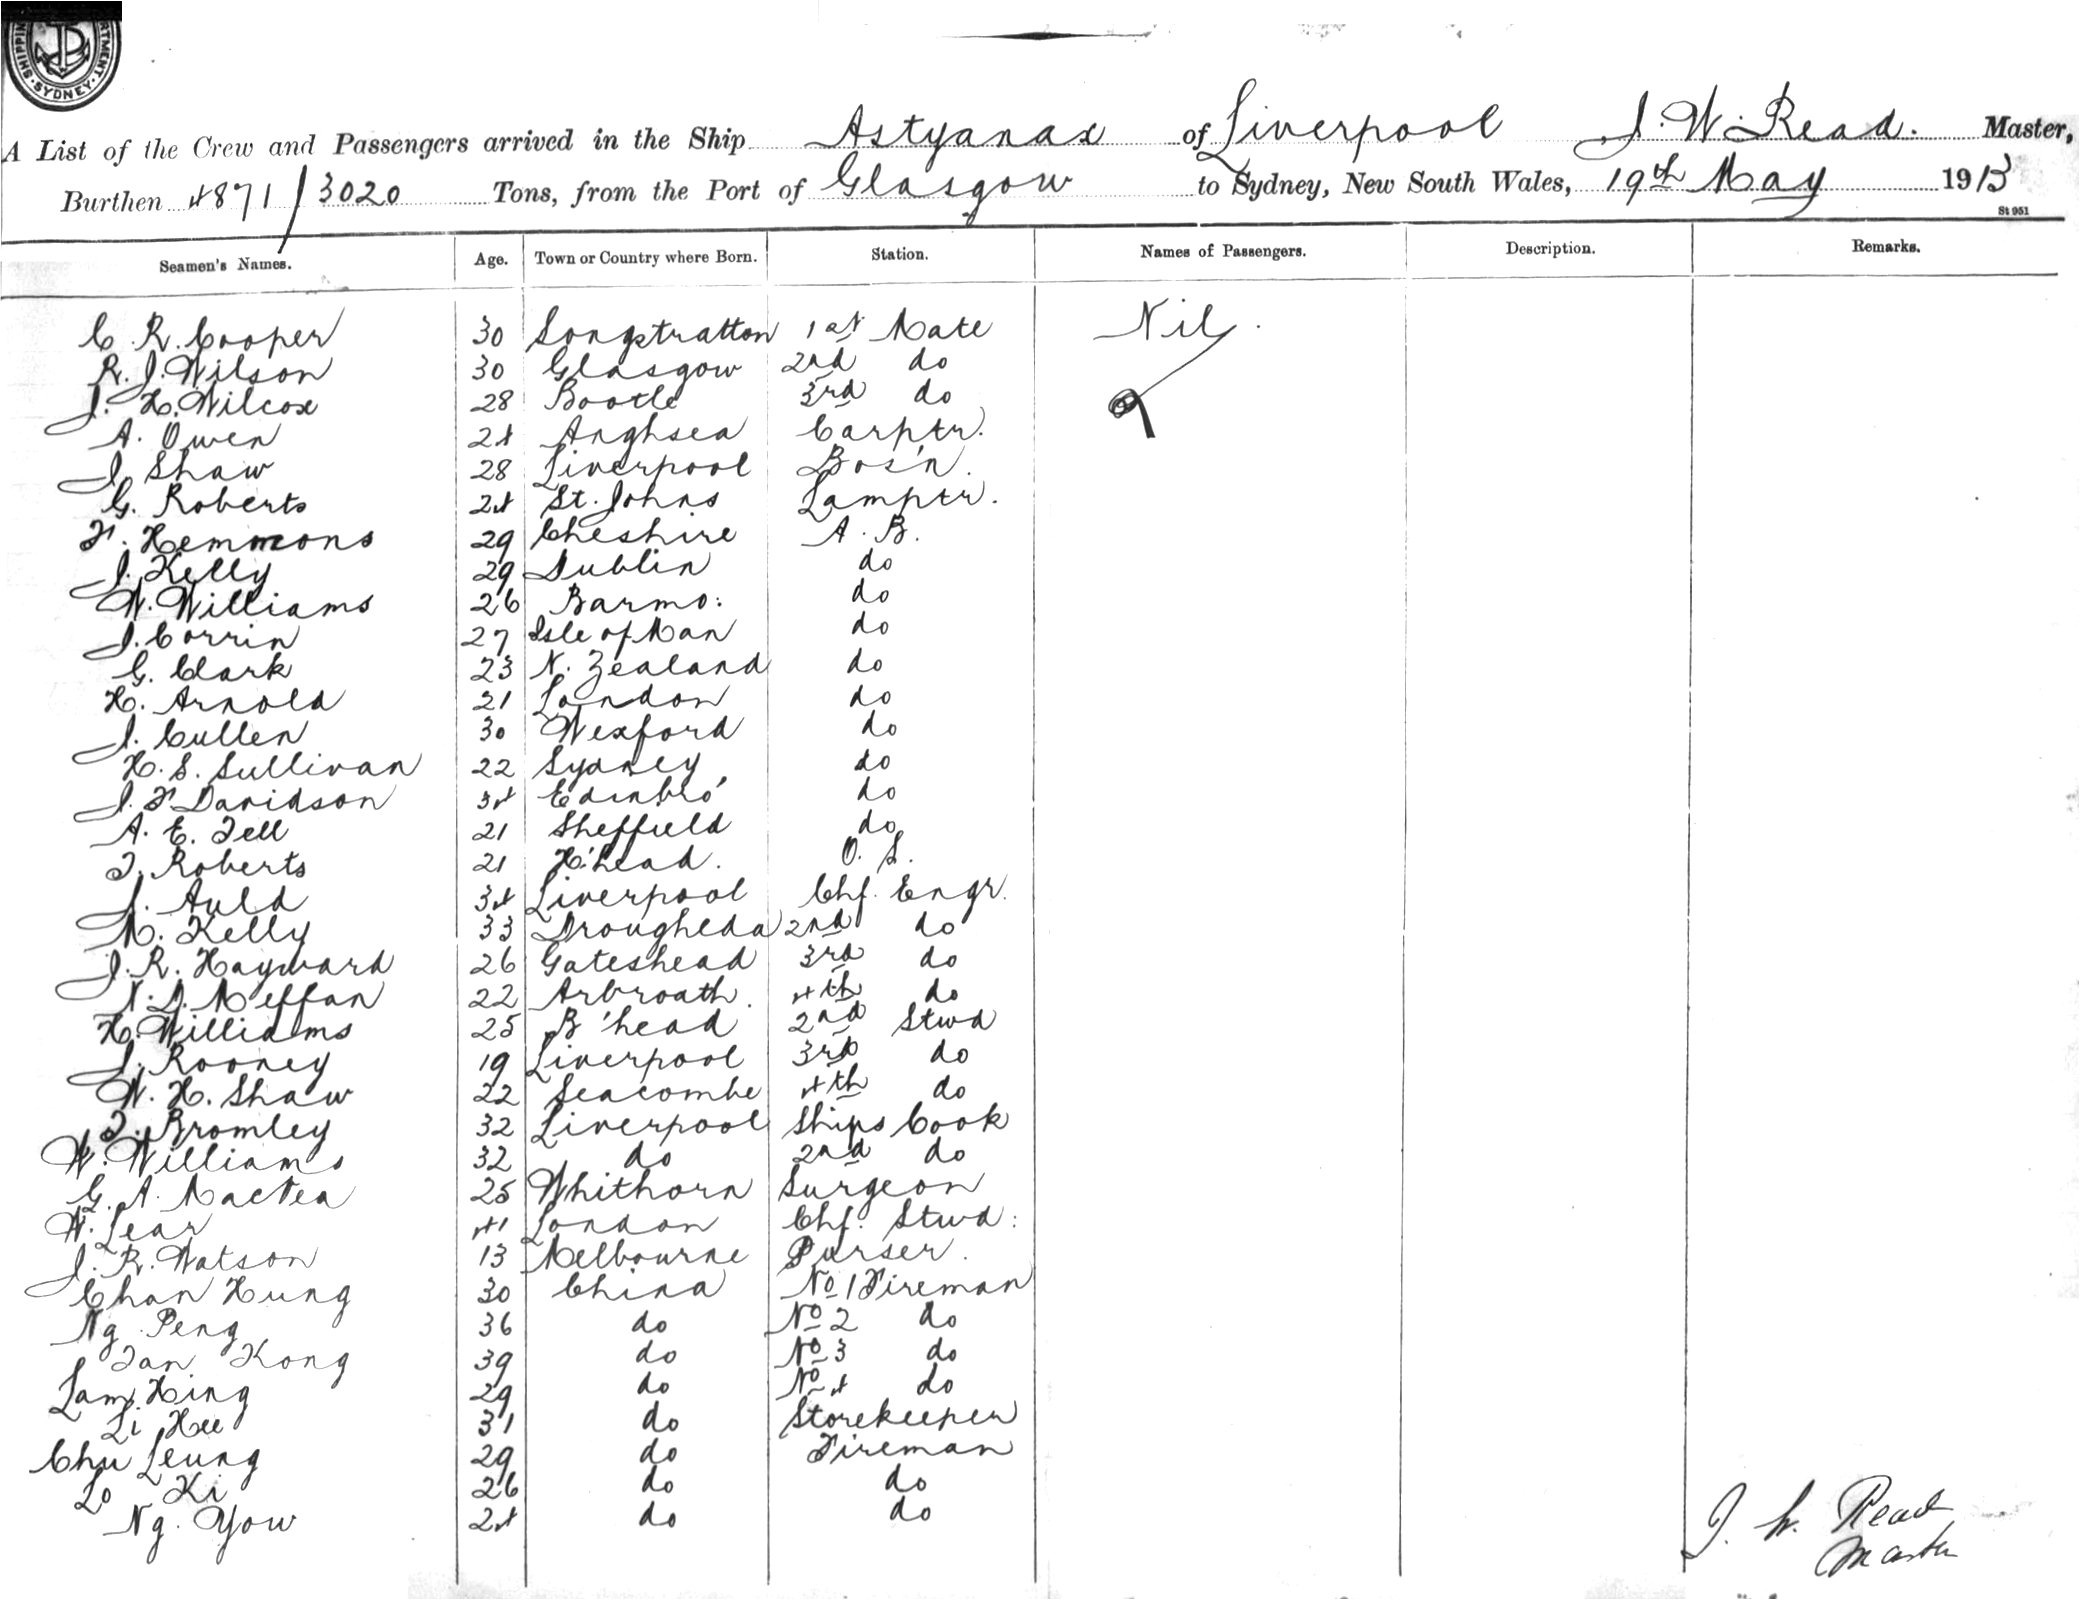 SHIPPING DEPARTMENT. SYDNEY.
A List of the Crew and Passengers arrived in the Ship Astyanax of Liverpool J. W. Read. Master,
Burthen 4871/3020 Tons, from the Port of Glasgow to Sydney, New South Wales, 19th May 1913
St 951
Seamen's Names. Age. Town or Country where Born. Station. Names of Passengers. Description. Remarks.
C. R. Cooper 30 Longstratton 1st Mate Nil.
R. J. Wilson 30 Glasgow 2nd do
J. H. Wilcox 28 Bootle 3rd do
A. Owen 24 Anglsea Carptr.
J. Shaw 28 Liverpool Bos'n.
G. Roberts 24 St. Johns Lamptr.
F. Hemmons 29 Cheshire A. B.
J. Kelly 29 Dublin do
W. Williams 26 Barmo: do
J. Corrin 27 Isle of Man do
G. Clark 23 N. Zealand do
H. Arnold 21 London do
J. Cullen 30 Wexford do
H. S. Sullivan 22 Sydney do
J. F. Davidson 34 Edinbro' do
A. E. Tell 21 Sheffield do
T. Roberts 21 H'head. O. S.
J. Auld 34 Liverpool Chf. Engr.
M. Kelly 33 Drougheda 2nd do
J. R. Hayward 26 Gateshead 3rd do
N. D. Meffan 22 Arbroath. 4th do
H. Williams 25 B'head 2nd Stwd
J. Rooney 19 Liverpool 3rd do
W. H. Shaw 22 Seacombe 4th do
T. Bromley 32 Liverpool Ships Cook
W. Williams 32 do 2nd do
G. A. 25 Whithorn Surgeon
W. Lear 41 London Chf. Stwd:
J. R. Watson 13 Melbourne Purser.
Chan Hung 30 China No 1 Fireman
Ng. Peng 36 do No 2 do
Tan Kong 39 do No 3 do
Lam Hing 29 do No 4 do
Li Hee 31 do Storekeeper
Chu Leung 29 do Fireman
Lo Ki 26 do do
Ng. Yow 24 do do
J. W. Read
Master